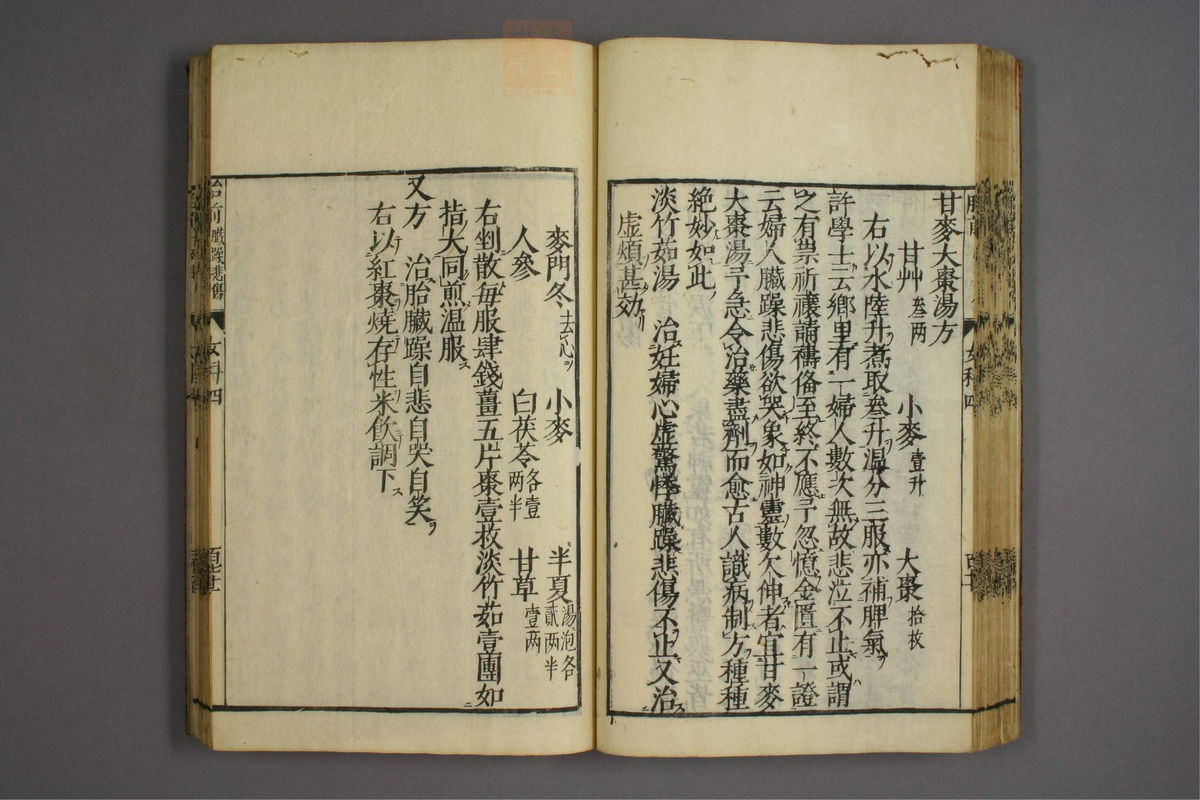 甘麥大棗湯方
甘艸叁两 小麥壹升 大棗拾枚
右以水陸升煮取叁升温分三服亦補脾氣
許學士云鄉里有一婦人數次無故悲泣不止或謂
之有祟祈禳請禱俻至終不應予忽憶金匱有一證
云婦人臟躁悲傷欲哭象如神靈數欠伸者宜甘麥
大棗湯予急令治藥盡劑而愈古人識病制方種種
絶妙如此
淡竹茹湯 治妊婦心虛驚悸臟躁悲傷不止又治
虛煩甚効
麥門冬去心 小麥 半夏湯泡各貳两半
人參 白茯苓各壹两半 甘草壹两
右剉散每服肆錢薑五片棗壹枚淡竹茹壹團如
指大同煎温服
又方 治胎臟躁自悲自哭自笑
右以紅棗燒存性米飲調下
臟躁悲傷
女科四